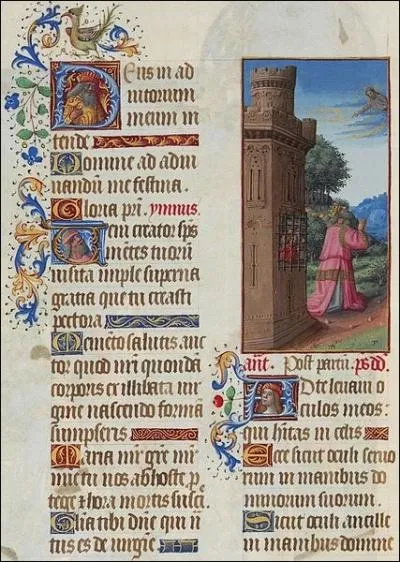 Deus in ad
iutorium
meum in
tende
Domine ad adiu
uandū me festina.
Gloria pri. ymnus.
Veni creator sps
mētes tuorū
uisita imple superna
gratia que tu creasti
pectora
Memēto salutis auc
tor quod nri quondā
corporis ex illibata uir
gine nascendo formā
sumpseris
Maria mr̄ gre mr̄
mie tu nos ab hoste p
tege & hora mortis susci.
Glia tibi dn̄e qui na
tus es de uirgīe
ant. Post partū ps dd.
Ad te leuaui o
culos meos:
qui habitas in celis
Ecce sicut oculi seruo
rum in manibus do
minorum suorum.
Sicut oculi ancille
in manibus domine